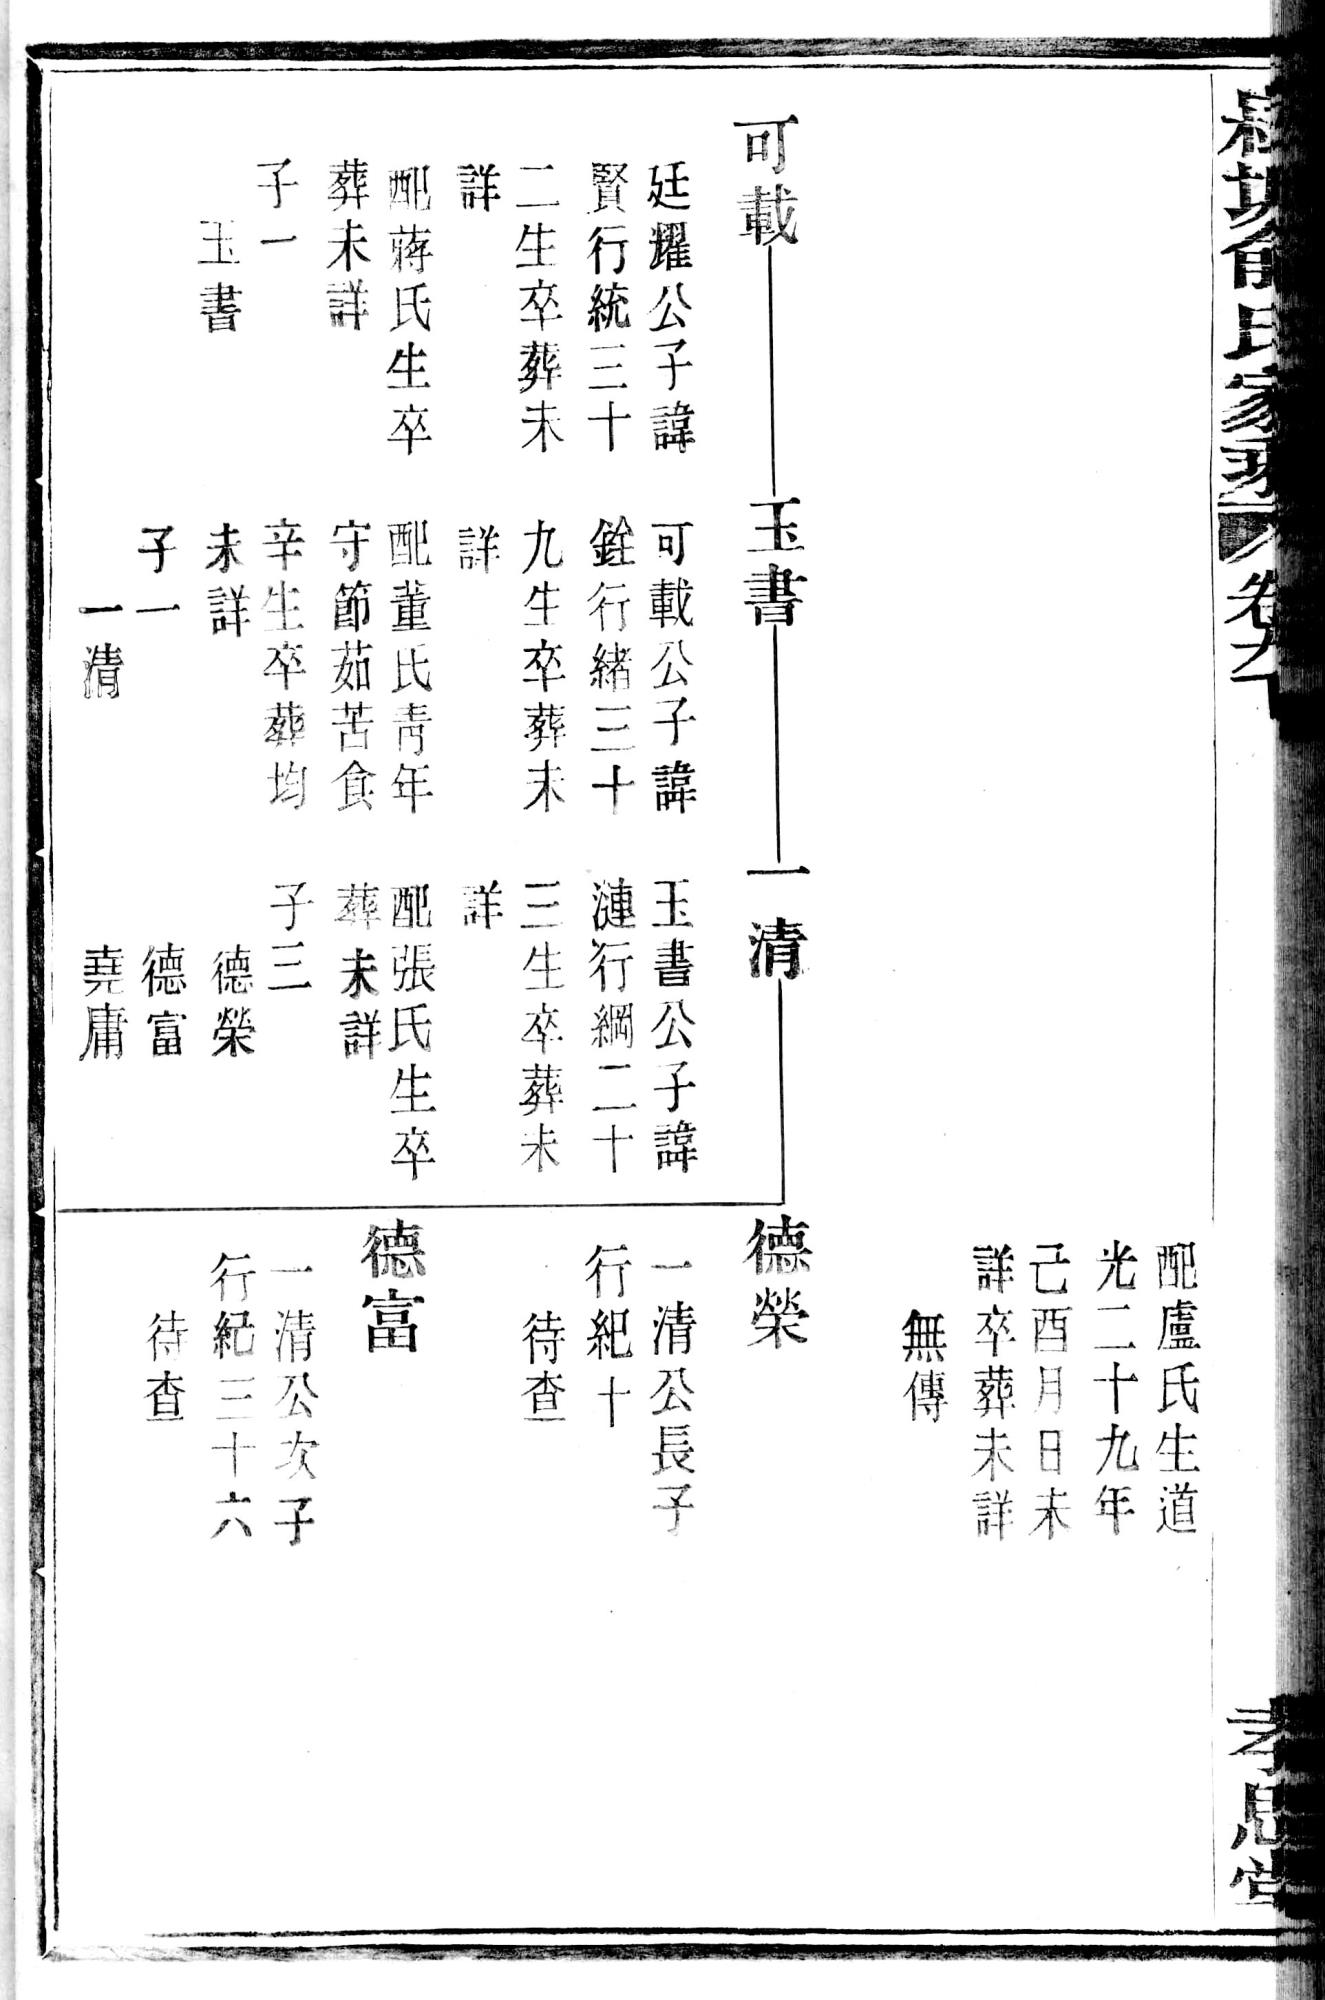 俞氏家
卷九
孝思堂
配盧氏生道
光二十九年
己酉月日未
詳卒葬未詳
無傳
可載
廷耀公子諱
賢行統三十
二生卒葬未
詳
配蔣氏生卒
葬未詳
子一
玉書
玉書
可載公子諱
銓行緒三十
九生卒葬未
詳
配董氏靑年
守節茹苦食
辛生卒葬均
未詳
子一
一清
一清
玉書公子諱
漣行綱二十
三生卒葬未
詳
配張氏生卒
葬未詳
子三
德榮
德富
堯庸
德榮
一清公長子
行紀十
待查
德富
一清公次子
行紀三十六
待查